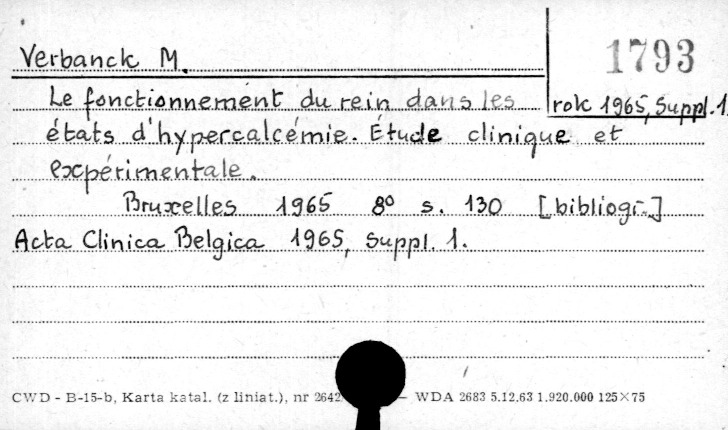 1793
Verbanck M.
Le fonctionnement du rein dans les rok 1965, Suppl. 1
états d'hypercalcémie. Étude clinique et
expérimentale.
Bruxelles 1965 8º s. 130 [bibliogr.]
Acta Clinica Belgica 1965, Suppl. 1.
CWD - B-15-b, Karta katal. (z liniat.), nr 2642 — WDA 2683 5.12.63 1.920.000 125×75